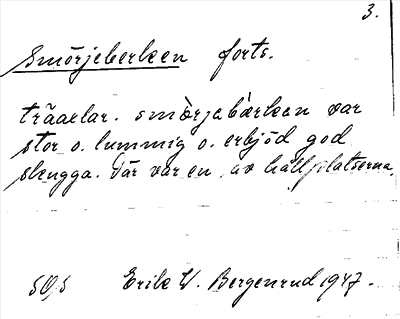 3.
Smörjeberken forts.
träaxlar. smö̀rjebä̀rkan var
stor o. lummig o. erbjöd god
skugga. Där var en av hållplatserna.
Erik W. Bergenrud 1947.